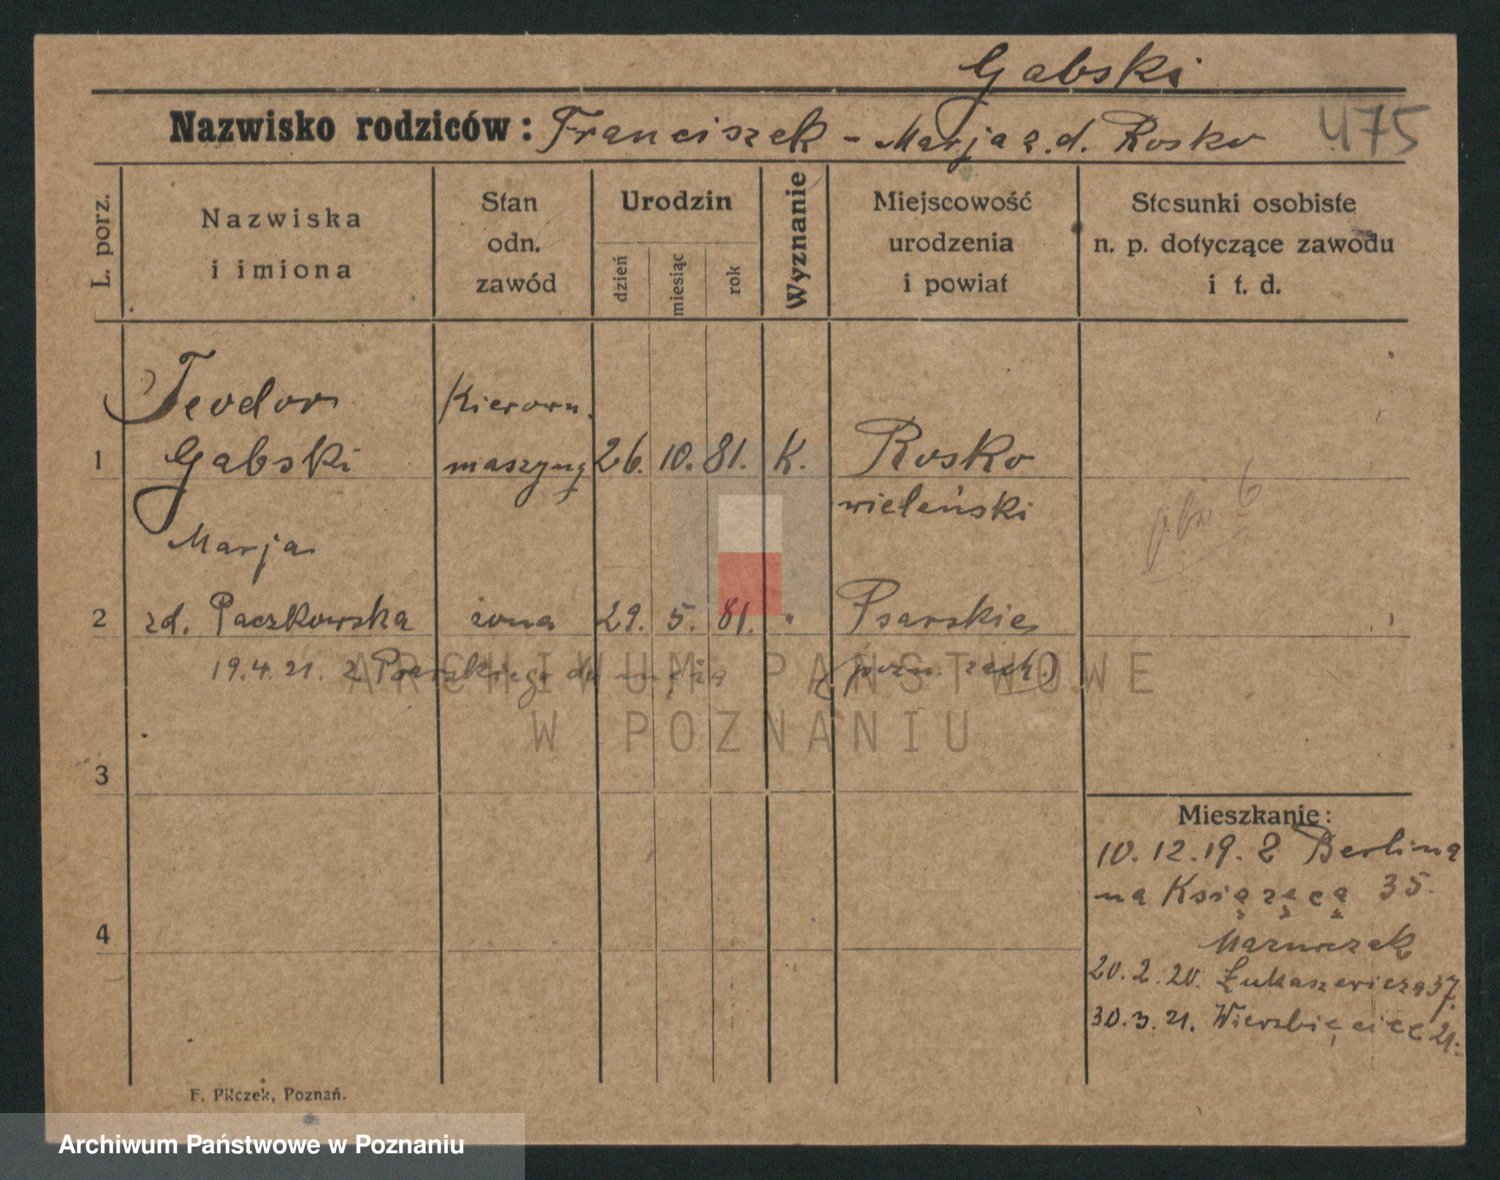 Gabski
Nazwisko rodziców: Franciszek - Marja z.d. Rosko 475
L. porz.
Nazwiska
i imiona
Stan
odn.
zawód
Urodzin
dzień
miesiąc
rok
Wyznanie
Miejscowość
urodzenia
i powiat
Stosunki osobiste
n. p. dotyczące zawodu
i t. d.
Teodor Kierown.
1 Gabski maszyny 26. 10. 81. K. Rosko
wieleński
Marja
2 zd. Paczkowska żona 29. 5. 81. " Psarskie
19.4.21. z Psarskiego do męża (pozn. zach.)
3
4
Mieszkanie:
10.12.19. z Berlina
na Książęcą 35.
20.2.20. Łukaszewicza 37.
30.3.21. Wierzbięcice 21.
F. Pilczek, Poznań.
ARCHIWUM PAŃSTWOWE
W POZNANIU
Archiwum Państwowe w Poznaniu